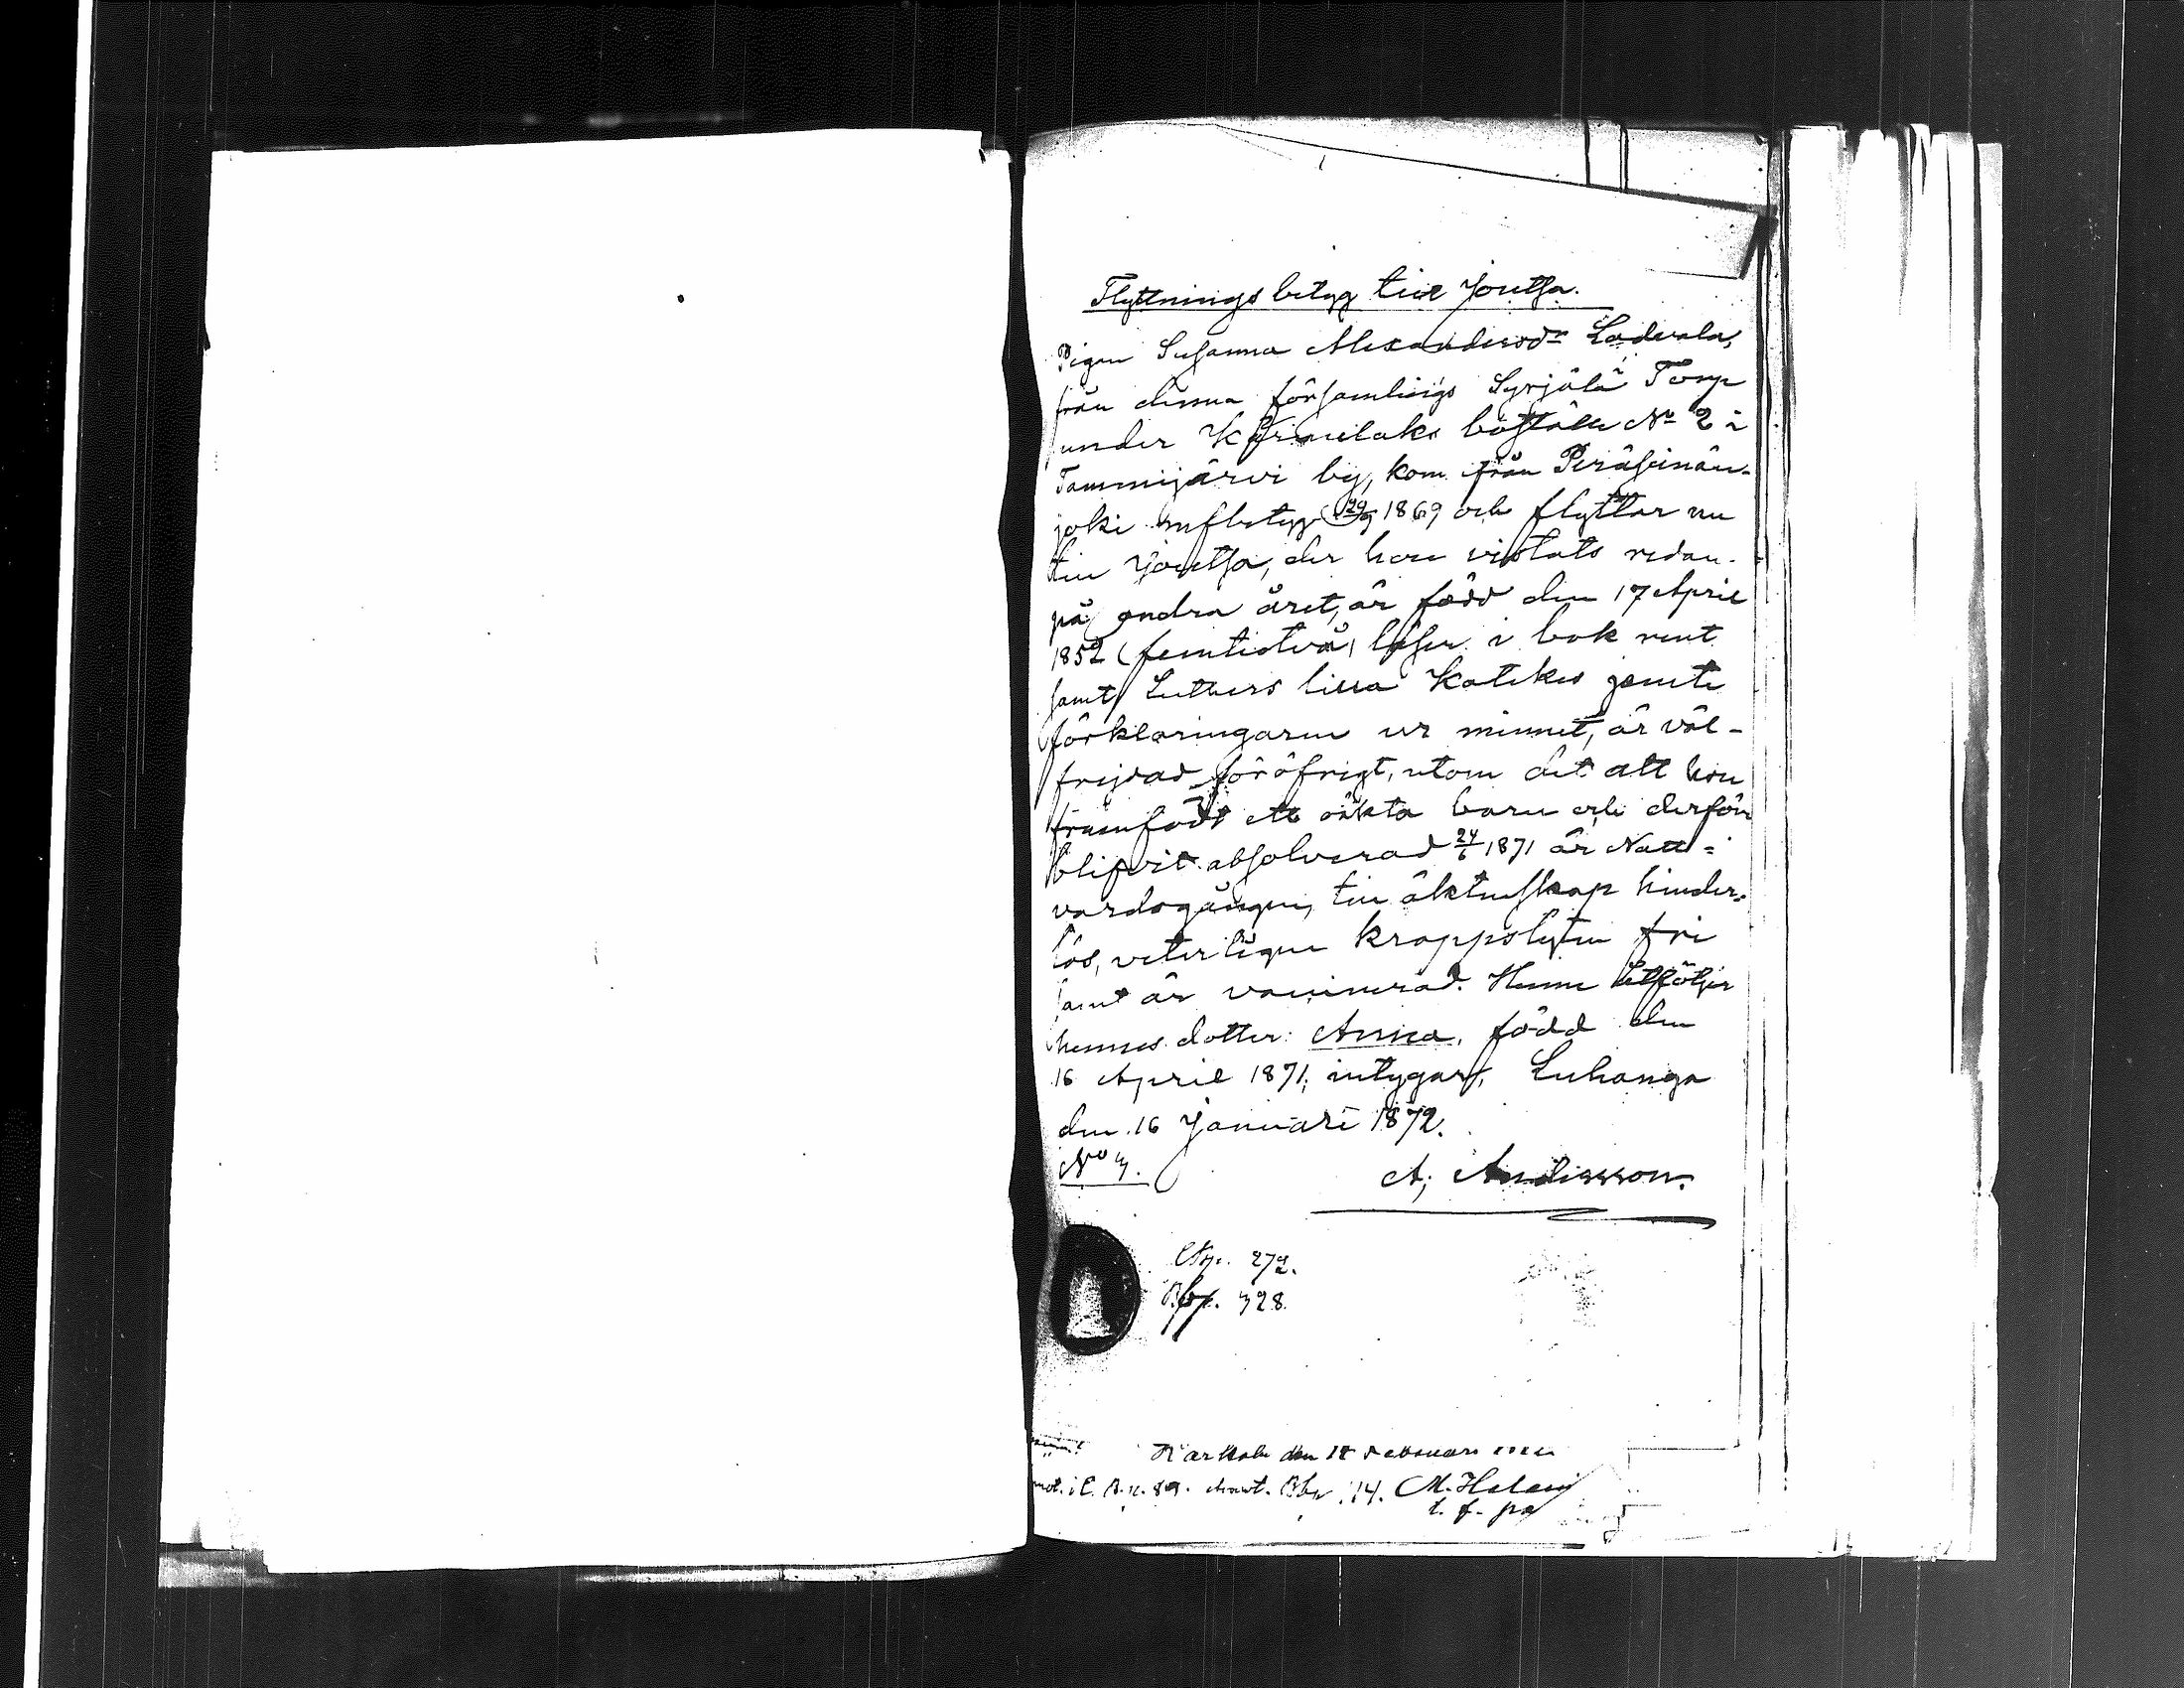 Flyttnings betyg till Joutsa.
Pigan Susanna Alexandersdr Ladvala,
från denna församlings Syrjälä Torp
under Kärmelaks boställe No 2 i
Tammijärvi by, kom från Peräseinä-
joki m flbetyg 1869 och flyttar nu
till Joutsa, der hon vistats redan
på andra året, är född den 17 April
1852 (femtiotvå) läser i bok rent
samt Luthers lilla Katekes jemte
förklaringarne ur minnet, är väl-
frejdad föröfrigt, utom det att hon
framfödt ett oäkta barn och derför
blifvit absolverad 24/6 1871 är Natt-
vardsgången, till äktenskap hinder-
lös, veterligen kroppslyten fri
samt är vaccinerad. Henne åtföljer
hennes dotter: Anna, född den
16 April 1871; intygar, Luhanga
den 16 Januari 1872.
No 3. A; Andersson.
272.
328.
den 18 Februari
M.
t. f. pa